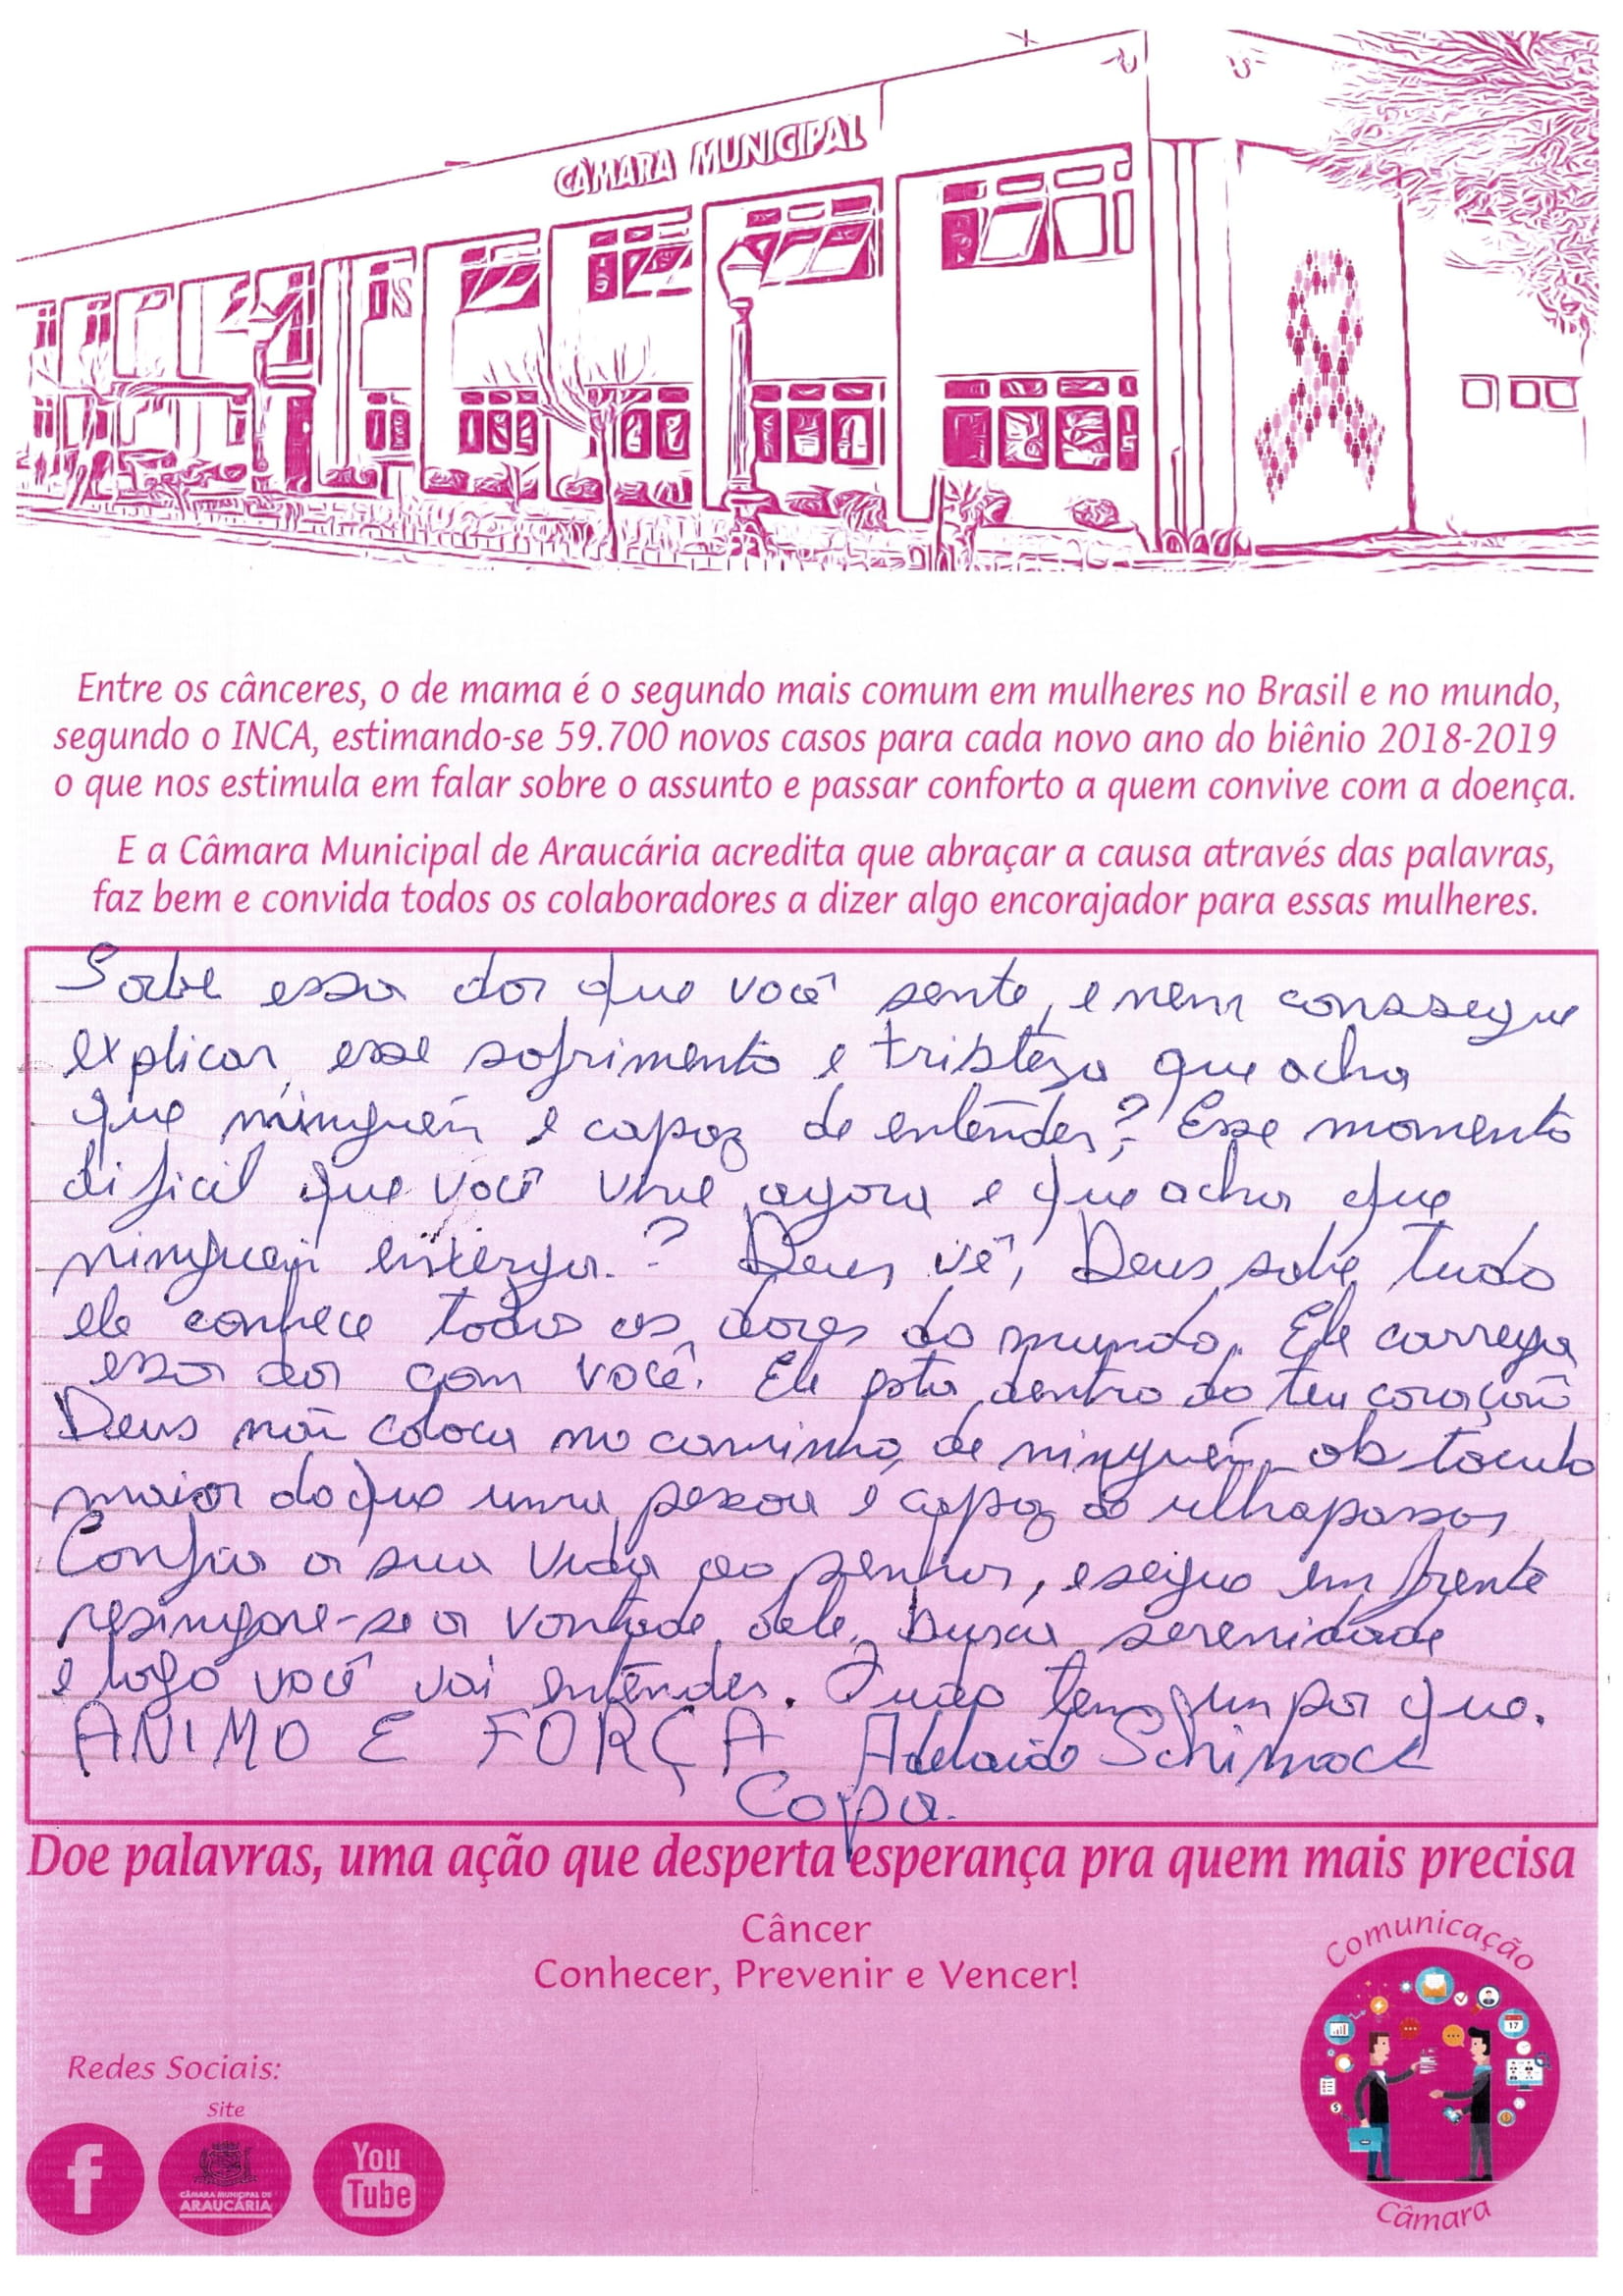 CÂMARA MUNICIPAL
Entre os cânceres, o de mama é o segundo mais comum em mulheres no Brasil e no mundo,
segundo o INCA, estimando-se 59.700 novos casos para cada novo ano do biênio 2018-2019
o que nos estimula em falar sobre o assunto e passar conforto a quem convive com a doença.
E a Câmara Municipal de Araucária acredita que abraçar a causa através das palavras,
faz bem e convida todos os colaboradores a dizer algo encorajador para essas mulheres.
Sabe essa dor que você sente, e nem conssegue
explicar, esse sofrimento e tristeza que acha
que ninguén e capaz de entender? Esse momento
dificil que você vive agora e que acha que
ninguem enxerga.? Deus vê, Deus sabe tudo
ele conhece todas as dores do mundo. Ele carrega
essa dor com você. Ele esta dentro do teu coração
Deus não coloca no caminho de ninguén obstaculo
maior do que uma pessoa e capaz de ultrapassar
Confia a sua vida ao senhor, e seigue em frente
a vontade dele, busca serenidade
e logo você vai entender. Tudo tem um por que.
ANIMO E FORÇA Adelaide Schimack
Copa.
Doe palavras, uma ação que desperta esperança pra quem mais precisa
Câncer
Conhecer, Prevenir e Vencer!
Comunicação
17
Câmara
Redes Sociais:
Site
f
CÂMARA MUNICIPAL DE
ARAUCÁRIA
You
Tube